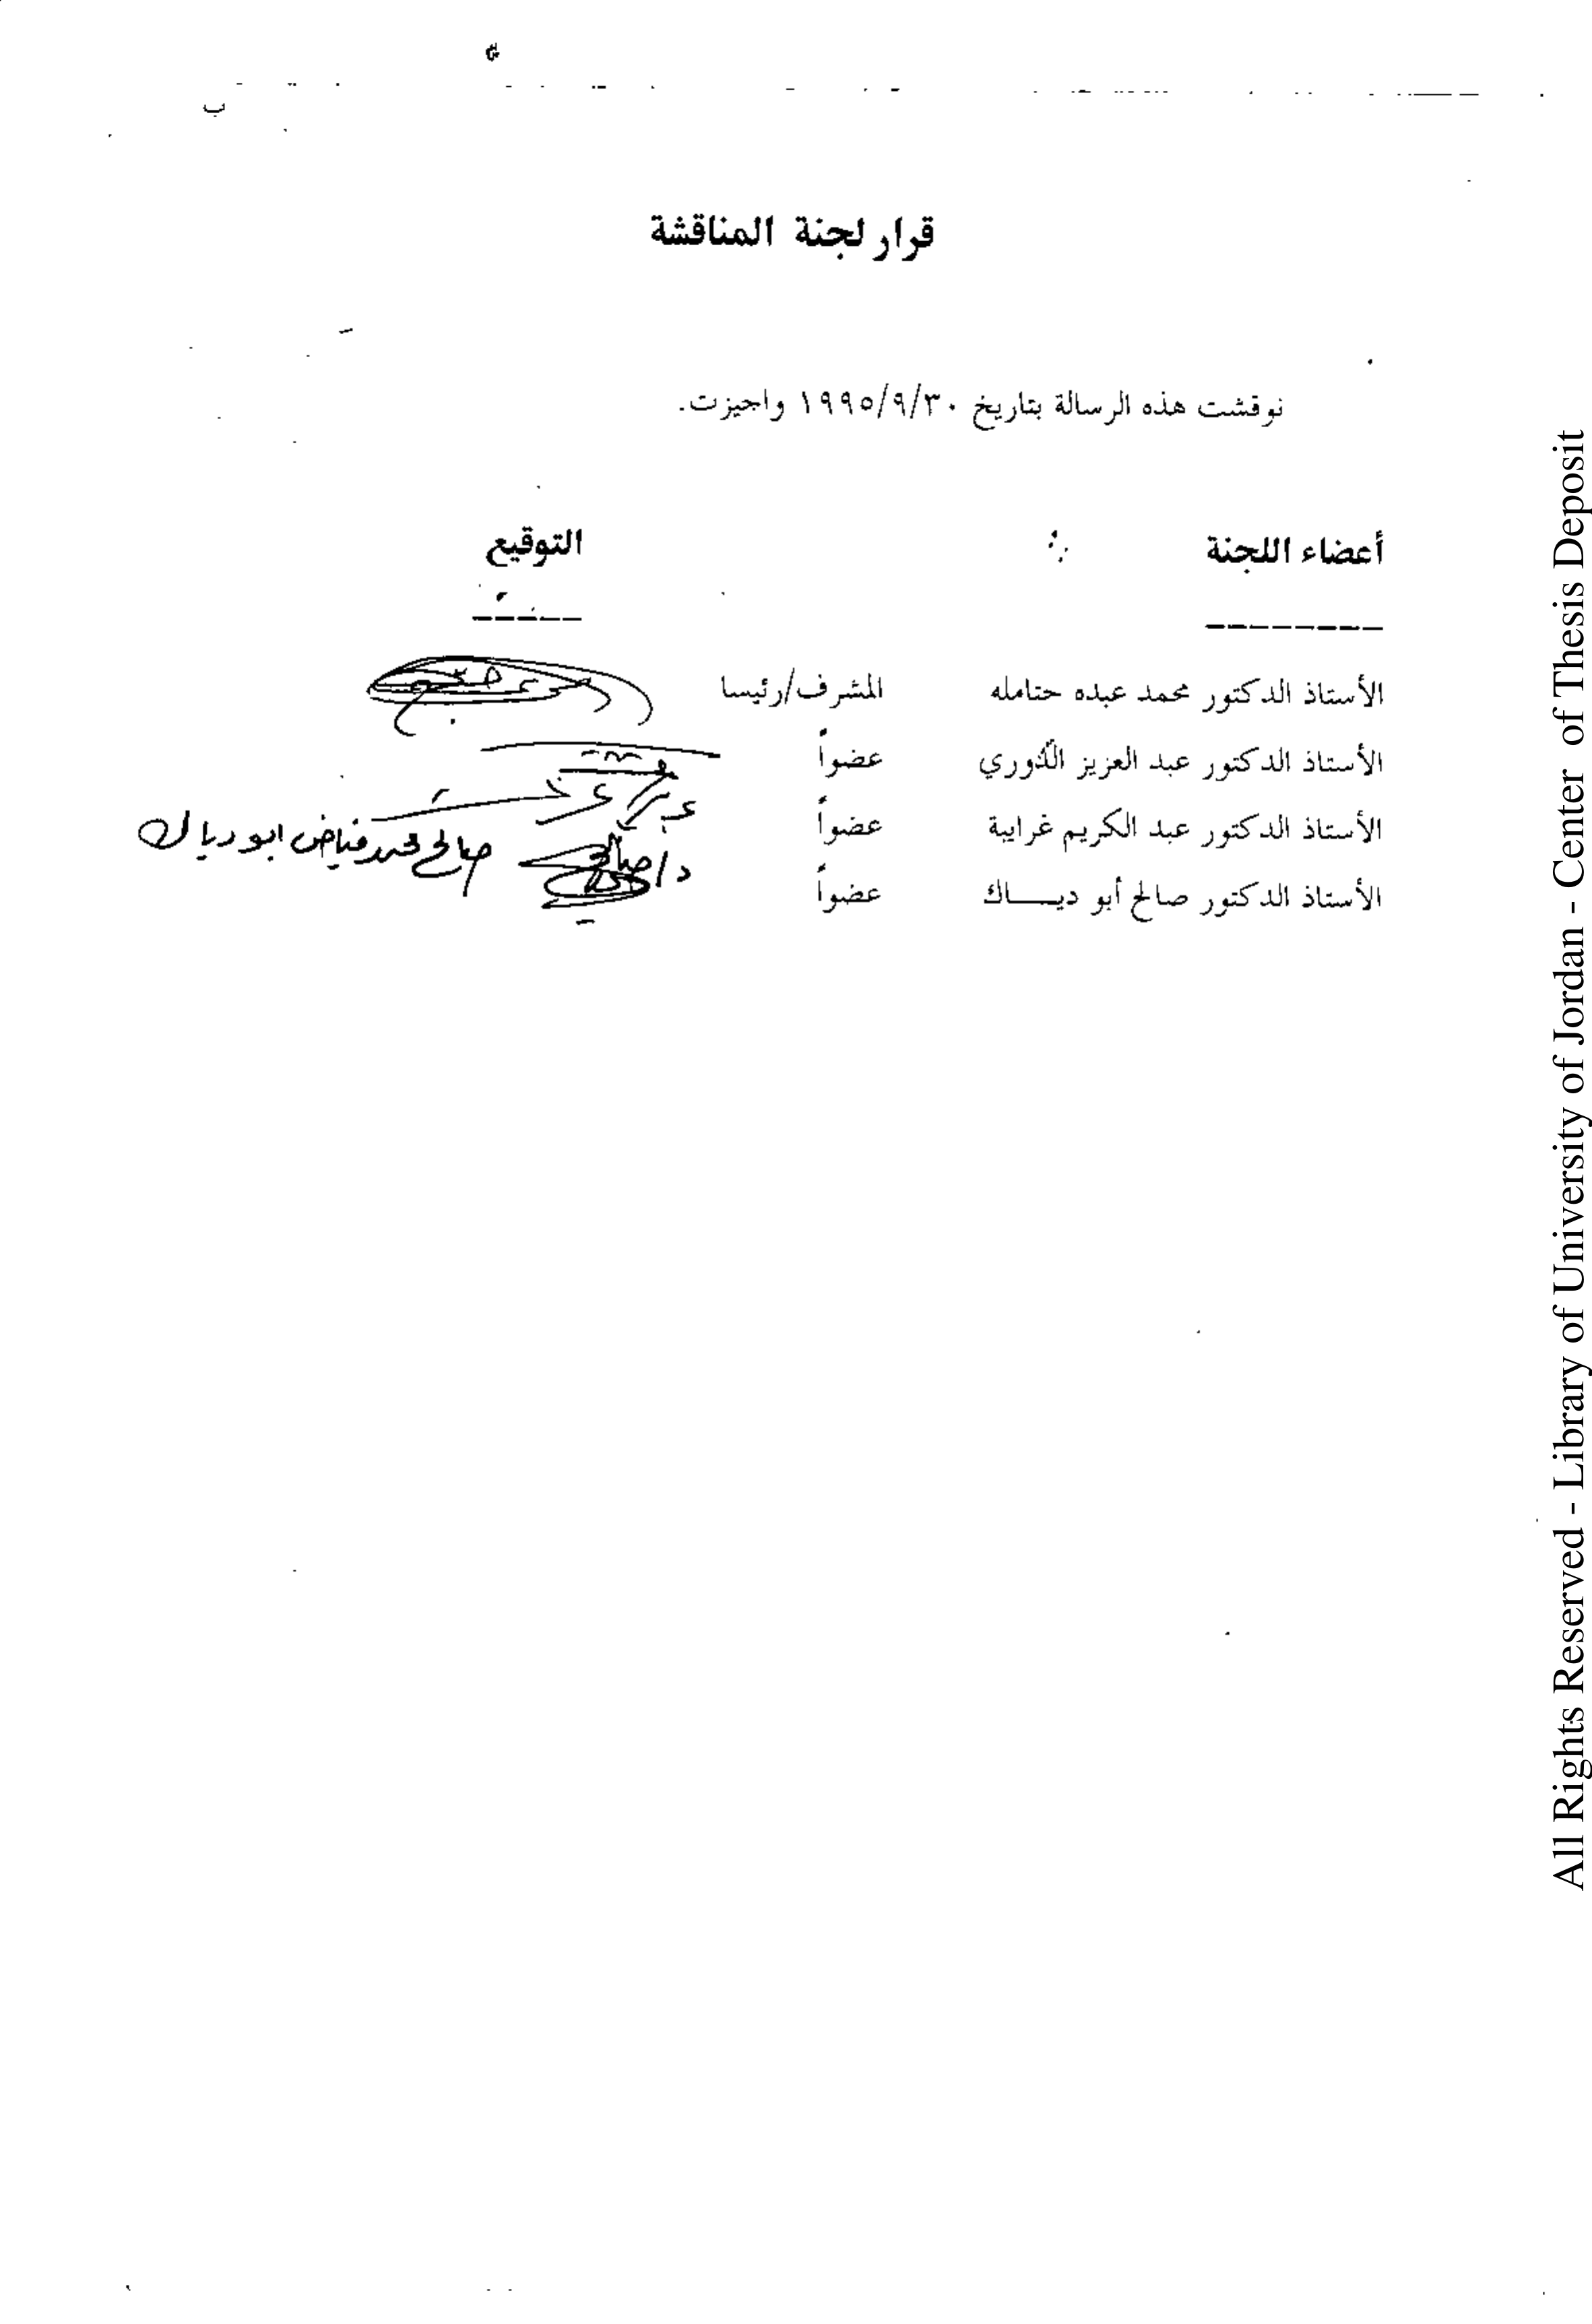 ب
قرار لجنة المناقشة
نوقشت هذه الرسالة بتاريخ ١٩٩٥/٩/٣٠ واجيزت.
أعضاء اللجنة التوقيع
الأستاذ الدكتور محمد عبده حتامله المشرف/رئيسا
الأستاذ الدكتور عبد العزيز الدوري عضواً
الأستاذ الدكتور عبد الكريم غرايبة عضواً
د/صالح صالح محمد فياض ابو دياك
الأستاذ الدكتور صالح أبو ديـــاك عضواً
All Rights Reserved - Library of University of Jordan - Center of Thesis Deposit